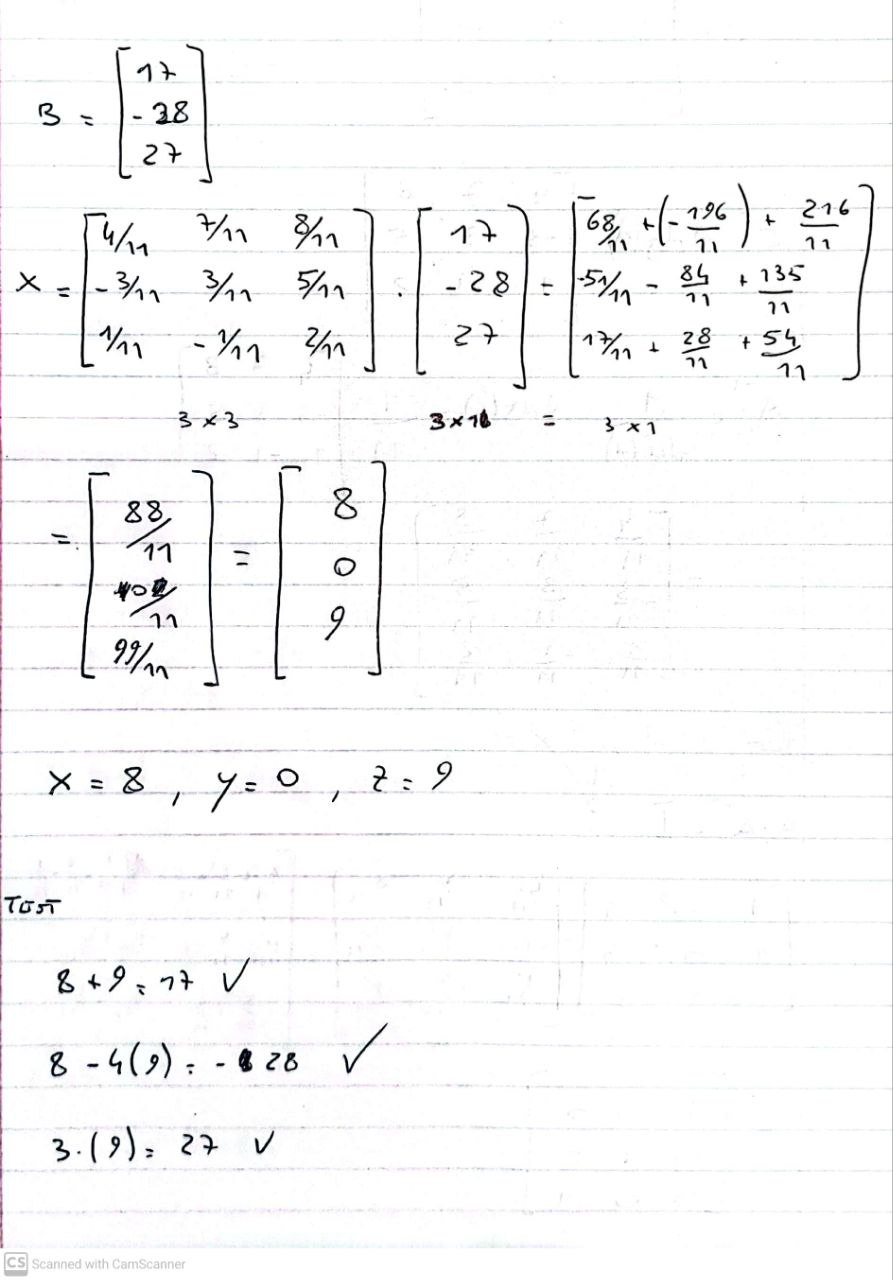 B = [ 17
- 28
27 ]
X = [ 4/11 7/11 8/11
- 3/11 3/11 5/11
1/11 - 1/11 2/11 ] . [ 17
- 28
27 ] = [ 68/11 + (- 196/11) + 216/11
-51/11 - 84/11 + 135/11
17/11 + 28/11 + 54/11 ]
3 x 3 3 x 1 = 3 x 1
= [ 88/11
/11
99/11 ] = [ 8
0
9 ]
x = 8 , y = 0 , z = 9
TEST
8 + 9 = 17 ✓
8 - 4(9) = - 28 ✓
3.(9) = 27 ✓
CS Scanned with CamScanner